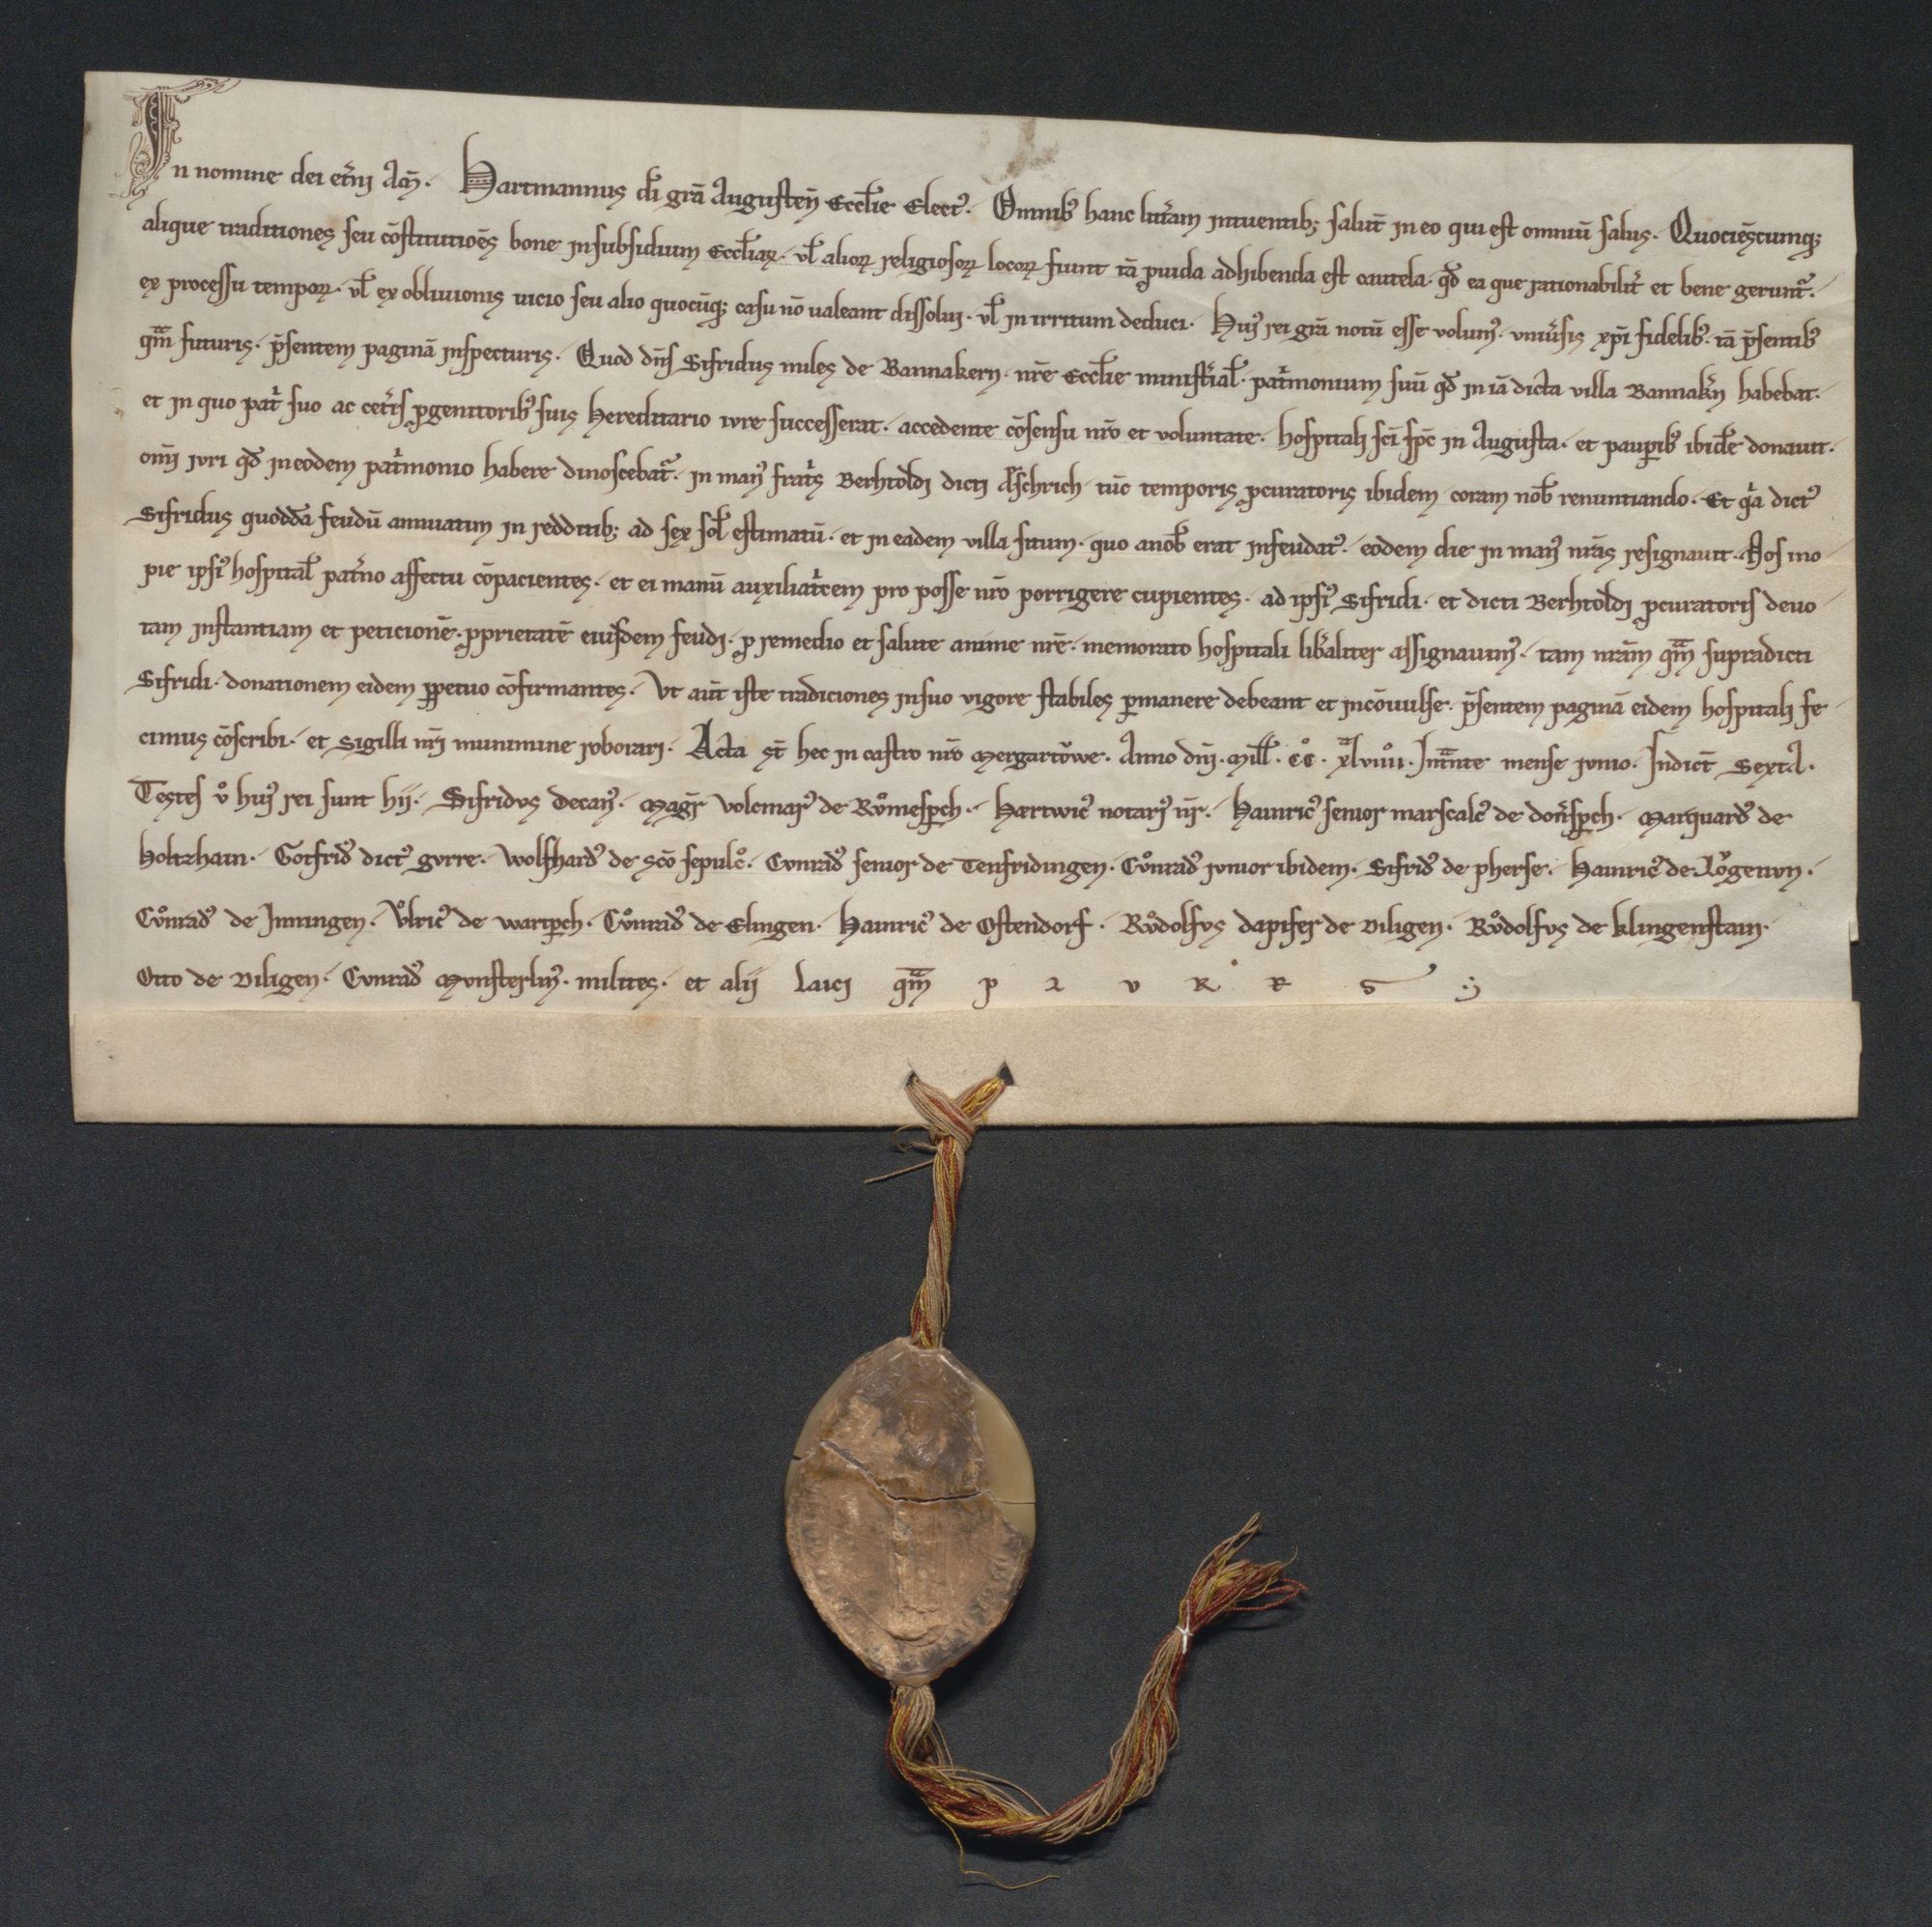 In nomine dei etn̄i Am̄. Hartmannus di grā Augusten̄ Eccl̄ie Elect᾿. Omnib᾿ hanc litt̄am intuentib; salut̄ in eo qui est omniū salus. Quociēscumq;
alique traditiones seu cōstitutiōes bone in subsidium Eccl̄iaꝝ. vl̄ alioꝝ religiosoꝝ locoꝝ fiunt tā ꝓuida adhibenda est cautela. qd̄ ea que rationabilit̄ et bene gerunt᾿.
ex processu tempoꝝ. vl̄ ex obliuionis uicio seu alio quocūq; casu nō ualeant dissolui. vl̄ in irritum deduci. Hui᾿ rei grā notū esse volum᾿. vniūsis xp̄i fidelib᾿. tā p̄sentib᾿
qm̄ futuris. p̄sentem paginā inspecturis. Quod dn̄s Sifridus miles de Bannakern. nr̄e Eccl̄ie minist̄ial̄. pat̄monium suū qd̄ in iā dicta villa Bannakn̄ habebat.
et in quo pat̄ suo ac cet̄is ꝓgenitorib᾿ suis Hereditario iure successerat. accedente cōsensu nr̄o et voluntate. hospitali sc̄i sp̄c in Augusta. et pauꝑib᾿ ibid̄e donauit.
om̄i iuri qd̄ in eodem pat̄monio habere dinoscebat᾿. in man᾿ frat̄s Berhtoldi dicti Aͤschrich tūc temporis ꝓcuratoris ibidem coram nob̄ renuntiando. Et q̄a dict᾿
Sifridus quoddā feudū annuatim in redditib; ad sex sol̄ estimatū. et in eadem villa situm. quo a nob̄ erat infeudat᾿. eodem die in man᾿ nrās resignauit. Nos ino
pie ipsi᾿ hospital̄ pat̄no affectu cōpacientes. et ei manū auxiliat̄cem pro posse nr̄o porrigere cupientes. ad ipsi᾿ Sifridi. et dicti Berhtoldi ꝓcuratoris deuo
tam instantiam et peticionē. ꝓprietatē eiusdem feudi. ꝓ remedio et salute anime nr̄e. memorato hospitali lib̄aliter assignauim᾿. tam nrām qm̄ supradicti
Sifridi. donationem eidem ꝑpetuo cōfirmantes. Vt aūt iste tradiciones in suo vigore stabiles ꝑmanere debeant et incōuulse. p̄sentem paginā eidem hospitali fe
cimus cōscribi. et sigilli nr̄i munimine roborari. Acta st̄ hec in castro nr̄o Mergartōwe. Anno dn̄i. Mill̄. cc᾿. xlviii᾿. Int̄nte mense iunio. Indict̄ Sexta.
Testes v᾿ hui᾿ rei sunt hii. Sifridvs Decan᾿. Magr̄ Volcmar᾿ de Rvͦmespch. Hartwic᾿ notari᾿ nr̄. Hainric᾿ senior marscalc᾿ de don̄spch. Marquard᾿ de
Holtzhain. Gotfrid᾿ dict᾿ gvrre. Wolfhard᾿ de sc̄o sepulc᾿. Cvnrad᾿ senior de Tenfridingen. Cvͦnrad᾿ iunior ibidem. Sifrid᾿ de pherse. Hainric᾿ de
Cvͦnrad᾿ de Inningen. Vͦlric᾿ de wartpch. Cvͦnrad᾿ de Elingen. Hainric᾿ de Ostendorf. Rvͦdolfvs dapifer de Diligen. Rvͦdolfvs de klingenstain.
Otto de Diligen. Cvnrad᾿ Mvnsterlin᾿. milites. et alii Laici qm̄ p a v R R s